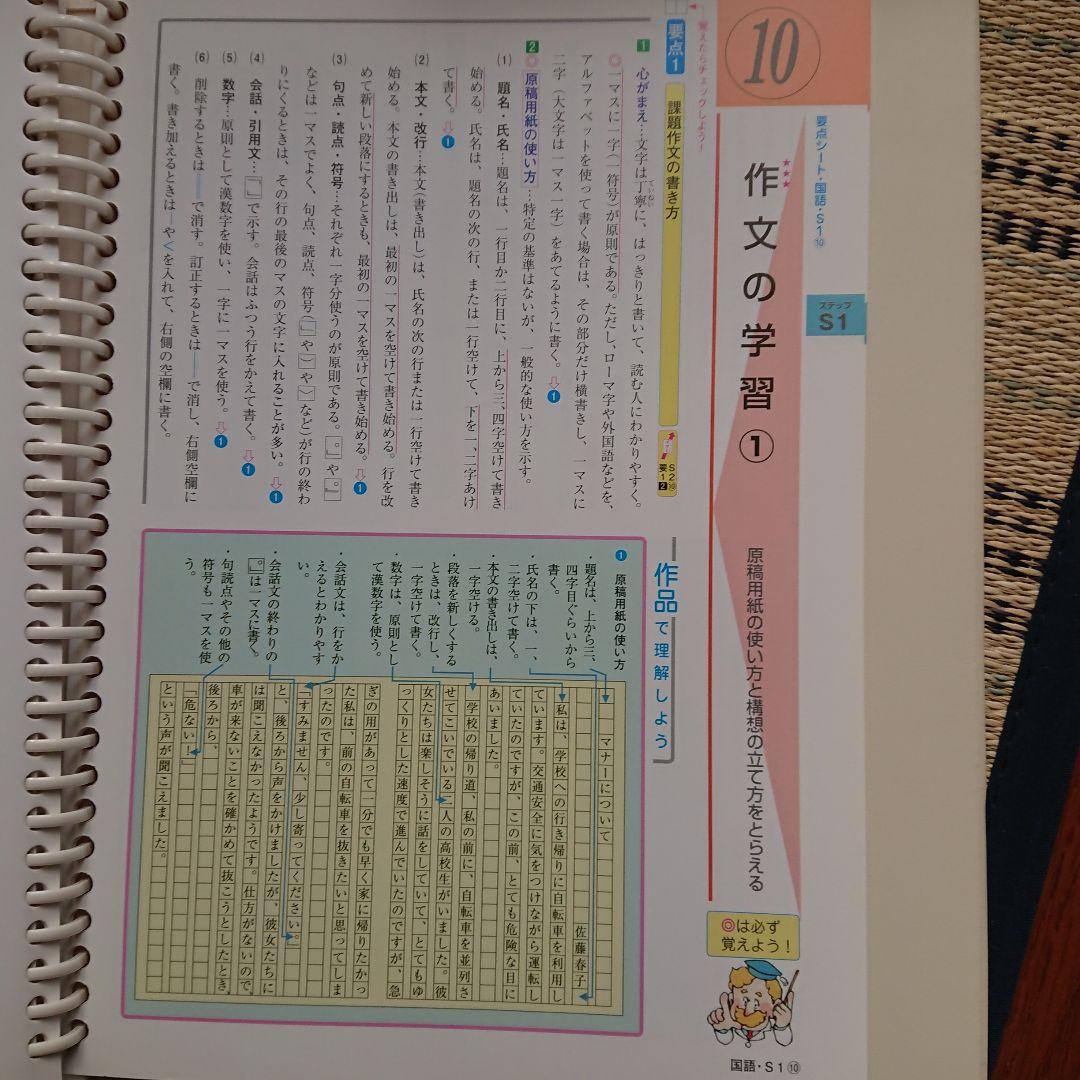 10
要点シート・国語・S1⑩
ステップ
S1
★★★
作文の学習①
原稿用紙の使い方と構想の立て方をとらえる
◎は必ず
覚えよう!
覚えたらチェックしよう!
要点1
課題作文の書き方
S2⑩
要12
1 心がまえ…文字は丁寧に、はっきりと書いて、読む人にわかりやすく。
ていねい
◎一マスに一字(一符号)が原則である。ただし、ローマ字や外国語などを、
アルファベットを使って書く場合は、その部分だけ横書きし、一マスに
二字(大文字は一マス一字)をあてるように書く。⇩1
2 ◎原稿用紙の使い方…特定の基準はないが、一般的な使い方を示す。
(1) 題名・氏名…題名は、一行目か二行目に、上から三、四字空けて書き
始める。氏名は、題名の次の行、または一行空けて、下を一、二字あけ
て書く。⇩1
(2) 本文・改行…本文(書き出し)は、氏名の次の行または一行空けて書き
始める。本文の書き出しは、最初の一マスを空けて書き始める。行を改
めて新しい段落にするときも、最初の一マスを空けて書き始める。⇩1
(3) 句点・読点・符号…それぞれ一字分使うのが原則である。「。」や「。」
などは一マスでよく、句点、読点、符号(「」や()など)が行の終わ
りにくるときは、その行の最後のマスの文字に入れることが多い。⇩1
(4) 会話・引用文…「」で示す。会話はふつう行をかえて書く。⇩1
(5) 数字…原則として漢数字を使い、一字に一マスを使う。⇩1
(6) 削除するときは――で消す。訂正するときは――で消し、右側空欄に
書く。書き加えるときは―や<を入れて、右側の空欄に書く。
作品で理解しよう
1 原稿用紙の使い方
・題名は、上から三、
四字目ぐらいから
書く。
・氏名の下は、一、
二字空けて書く。
・本文の書き出しは、
一字空ける。
・段落を新しくする
ときは、改行し、
一字空けて書く。
・数字は、原則とし
て漢数字を使う。
・会話文は、行をか
えるとわかりやす
い。
・会話文の終わりの
「。」は一マスに書く。
・句読点やその他の
符号も一マスを使
う。
マナーについて
佐藤春子
私は、学校への行き帰りに自転車を利用し
ています。交通安全に気をつけながら運転し
ていたのですが、この前、とても危険な目に
あいました。
学校の帰り道、私の前に、自転車を並列さ
せてこいでいる二人の高校生がいました。彼
女たちは楽しそうに話をしていて、とてもゆ
っくりとした速度で進んでいたのですが、急
ぎの用があって一分でも早く家に帰りたかっ
た私は、前の自転車を抜きたいと思ってしま
ったのです。
「すみません、少し寄ってください。」
と、後ろから声をかけましたが、彼女たちに
は聞こえなかったようです。仕方がないので、
車が来ないことを確かめて抜こうとしたとき、
後ろから、
「危ない!」
という声が聞こえました。
国語・S1⑩